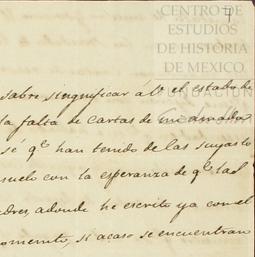 CENTRO DE
ESTUDIOS
DE HISTORIA
DE MEXICO.
FUNDACIÓN
sabre singnificar á V. el estado de
la falta de cartas de mi amado
sé qe. han tenido de las suyas lo
suelo con la esperanza de qe. las
adonde he escrito ya con el
si acaso se encuentran